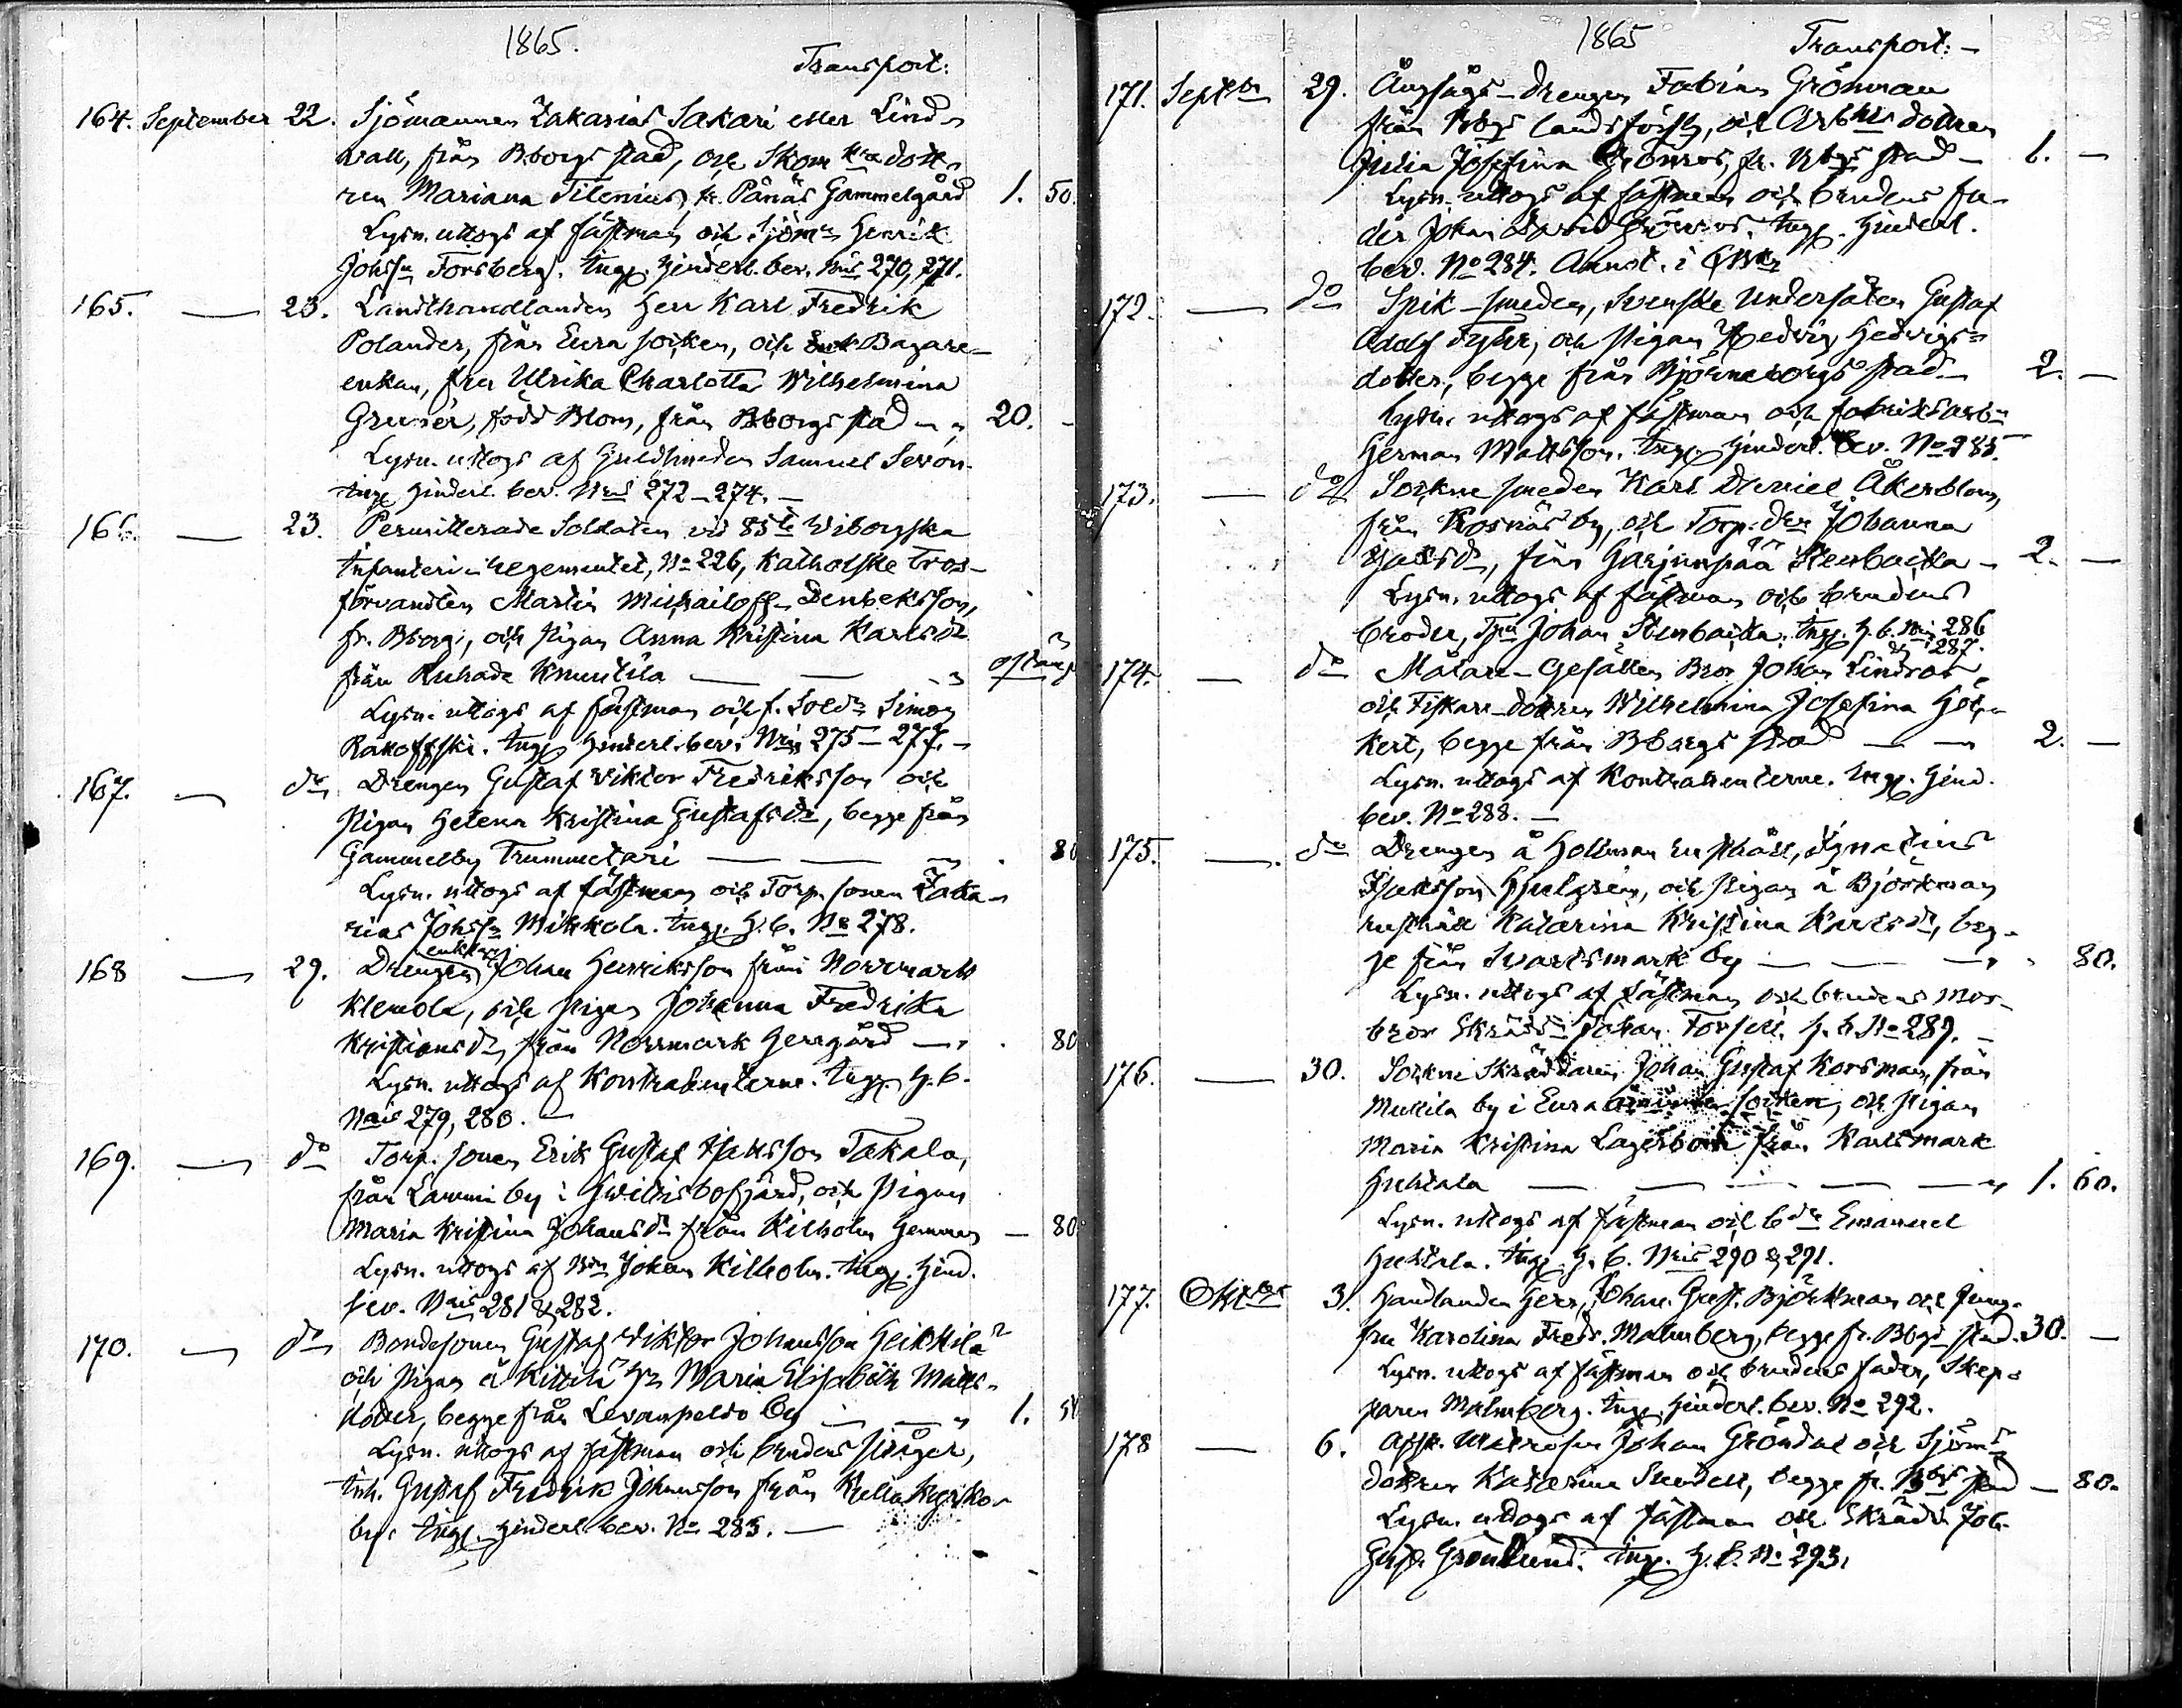 1865.
Transport:
164. September 22. Sjömannen Zakarias Sakari eller Lind-
wall, från Bborgs stad, och Skom dott-
ren Mariana Tilenius, fr. Pånäs Gammelgård 1. 50.
Lysn. uttogs af fästman och Sjöm. Henrik
Johss. Forsberg. Ingp. hinderl. bev. Nris 270, 271.
165. — 23. Landthandlanden Herr Karl Fredrik
Polander, från Eura socken, och Bagare-
enkan, fru Ulrika Charlotta Wilhelmina
Grenér, född Blom, från Bborgs stad 20. -
Lysn. uttogs af Guldsmeden Samuel Sevon.
Ingp. hinderl. bev. Nris 272-274. —
166. — 23. Permitterade Soldaten vid 85te Wiborgska
Infanteri-regementet, No 226, Katholske tros-
förvandten Martin Michailoff Denbeksson,
fr. Bborg, och pigan Anna Kristina Karlsdr
från Ruhade Knuutila — —
Lysn. uttogs af fästman och f. Sold. Simon
Rakoffski. Ingp. hinderl. bev. Nris 275-277. -
167. — do Drengen Gustaf Viktor Fredriksson och
pigan Helena Kristina Gustafsdr, begge från
Gammelby Trummetari — — 80
Lysn. uttogs af fästman och Torp. sonen Zaka-
rias Johss. Mikkola. Ingp. h. b. No 278.
enkl.
168 — 29. Drengen Johan Henriksson från Norrmark
Klemola, och pigan Johanna Fredrika
Kristiansdr, från Norrmark Herrgård — 80
Lysn. uttogs af Kontrahenterne. Ingp. h. b.
Nris 279, 280. —
169. — do Torp. sonen Erik Gustaf Isaksson Takala,
från Lammi by i Hvittisbofjärd, och pigan
Maria Kristina Johansdr från Kilholm Hemman — 80
Lysn. uttogs af Johan Kilholm. Ingp. hind.
bev. Nris 281 & 282.
170. — do Bondesonen Gustaf Viktor Johansson Heikkilä
och pigan å Kittilä Maria Elisabeth Matts-
dotter, begge från Levanpelto by — — 1.
Lysn. uttogs af fästman och brudens svåger,
Inh. Gustaf Fredrik Johansson från Kulla Kyrko-
by. Ingp. hinderl. bev. No 283. —
1865
Transport: —
171. Septbr 29. Ångsågs-drengen Fabian Grönman
från Bbgs landsförsg, och Arbkls dottren
Julia Josefina Grönros, fr. Bbgs stad — 1. —
Lysn. uttogs af fästman och brudens fa-
der Johan David Grönros. Ingp. hinderl.
bev. No 284. Annot. i
172. — do Spik-smeden, Svenske Undersåten Gustaf
Adolf, och pigan Hedvig Hedvigs-
dotter, begge från Björneborgs stad — 2. —
Lysn. uttogs af fästman och fabriksarb.
Herman Mattsson. Ingp. hinderl. bev. No 285.
173. — do Sockne smeden Karl Daniel Åkerblom,
från Kosnäs by, och Torp. dr Johanna
Isaksdr, från Harjunpää Stenbacka — 2. —
Lysn. uttogs af fästman och brudens
broder, Johan Stenbacka. Ingp. h. b. Nris 286
& 287.
174. — do Målare-Gesällen Bror Johan Lindroos
och Fiskare-dottren Wilhelmina Josefina
begge från Bborgs stad — — 2. —
Lysn. uttogs af Kontrahenterne. Ingp. hind.
bev. No 288. —
175. — do Drengen å Hollman rusthåll, Ignatius
Isaksson, och pigan å Björkman
rusthåll Katarina Kristina Karlsdr, beg-
ge från Svartsmark by — — 80.
Lysn. uttogs af fästman och brudens mor-
bror Skrädd. Johan Forsell. h. b. No 289. —
176. — 30. Sockne Skräddaren Johan Gustaf Korsman, från
Mullila by i Euraåminne socken, och pigan
Maria Kristina Lagerbom från Karlsmark
Huhtala — — — — 1. 60.
Lysn. uttogs af fästman och Emanuel
Huhtala. Ingp. h. b. Nris 290 & 291.
177. Oktbr 3. Handlanden Herr Johan Gust. Björkman och Jung-
fru Karolina Fredr. Malmberg, begge fr. Bbgs stad. 30. —
Lysn. uttogs af fästman och brudens fader, Skep-
paren Malmberg. Ingp. hinderl. bev. No 292.
178 — 6. Matrosen Johan Gröndal och Sjöm.
dottren Katarina Sundell, begge fr. Bbgs stad — 80.
Lysn. uttogs af fästman och Skrädd. Joh.
Gust. Grönlund. Ingp. h. b. No 293.